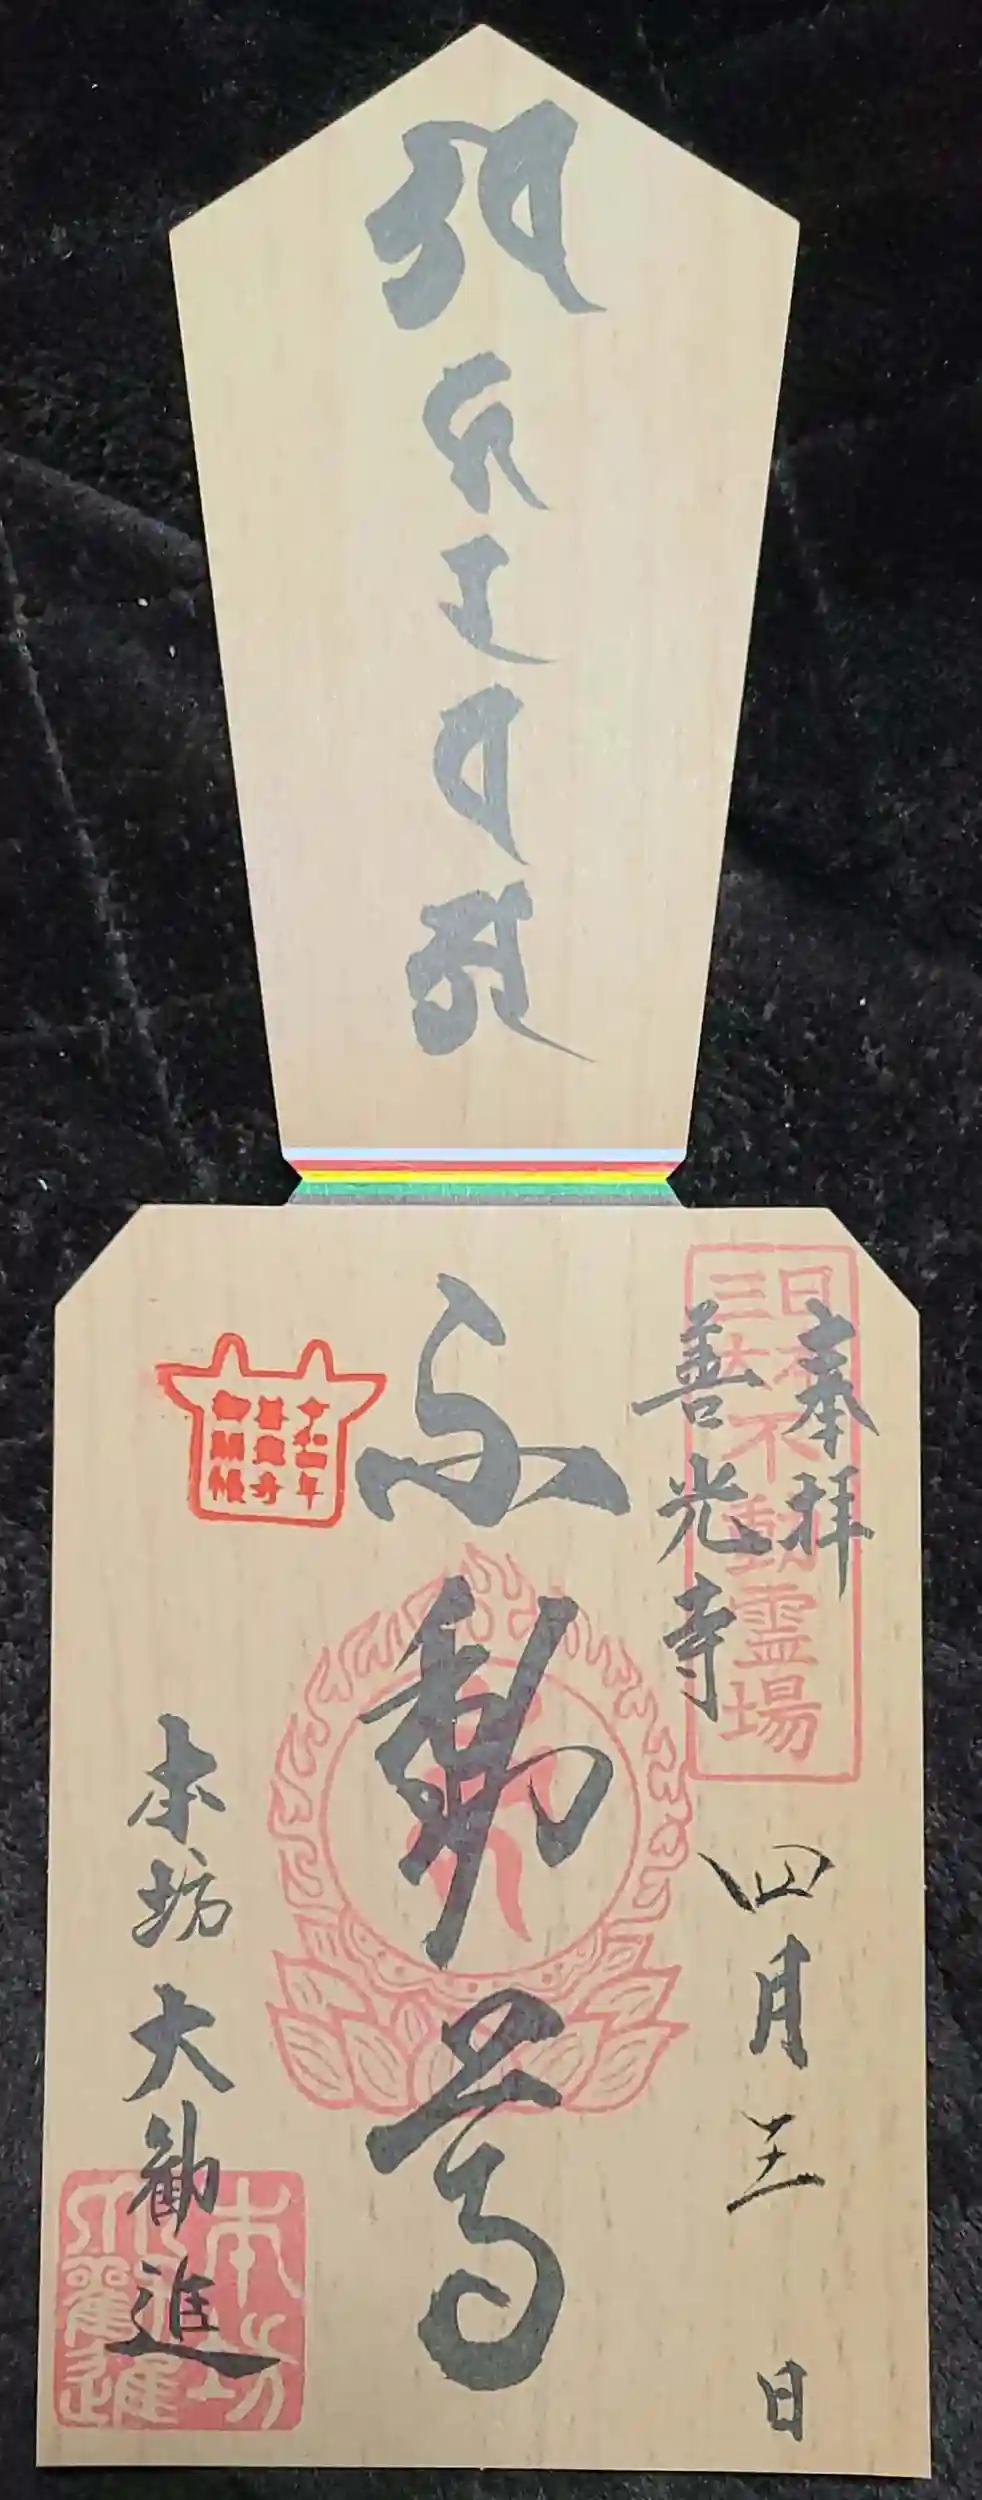 奉拝
日本三大不動霊場
善光寺
四月三日
不動尊
令和四年
善光寺
御開帳
本坊大勧進
本坊
大勧進